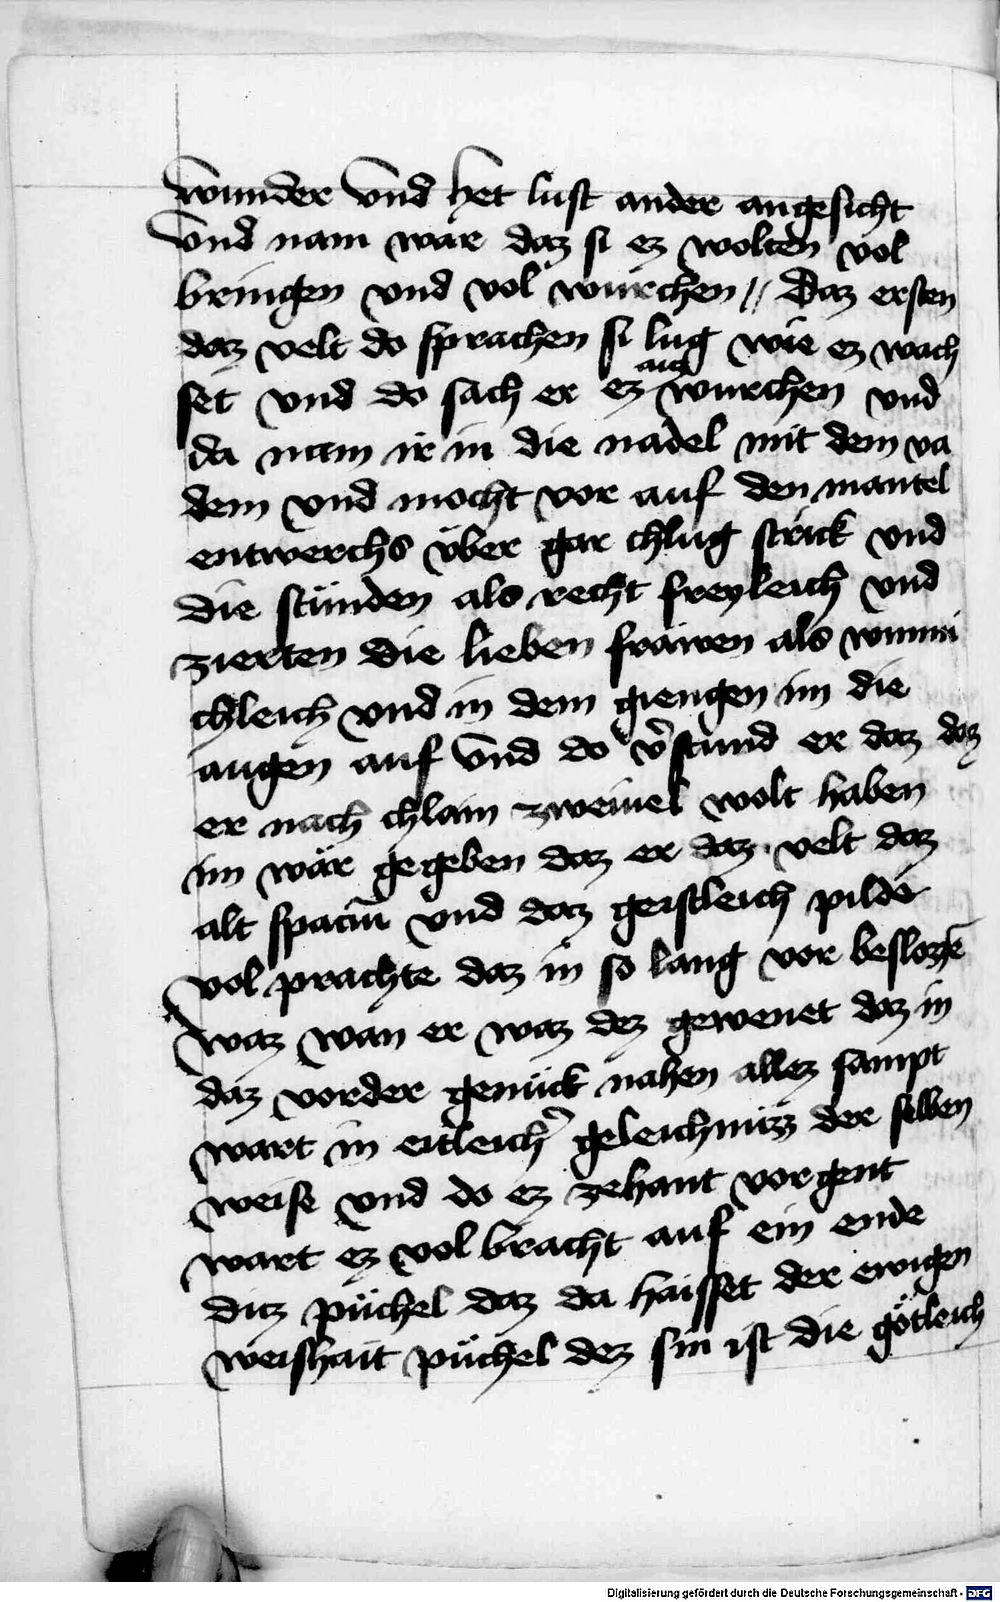 wunder vnd het lust ander angesicht
vnd nam war daz si ez wolten vol
bringen vnd vol wurchen // Daz ersten
daz velt do sprachen si lug wie ez wach
set vnd do sach er ez auch wurchen vnd
da nam ir in die nadel mit dem va
dem vnd mocht vor auf den mantel
entwerchs vber gar chlug strick vnd
die stünden als recht freyleich vnd
zierten die lieben frawen als wunni
chleich vnd in dem giengen im die
augen auf vnd do v̾stund er daz daz
er nach chlain zweiuel wolt haben
im wär gegeben daz er daz velt daz
alt spaciū vnd daz geistleich pilde
vol prachte daz in so lang vor beslozzē
waz wan er waz dez gewenet daz in
daz vorder gemück nahen allez sampt
wart in eitleich̾ geleichnüzz der silben
weise vnd do ez zehant vorgent
wart ez vol bracht auf ein ende
dicz püchel daz da haisset der ewigen
weishait püchel dez sin ist die götleich
Digitalisierung gefördert durch die Deutsche Forschungsgemeinschaft - DFG